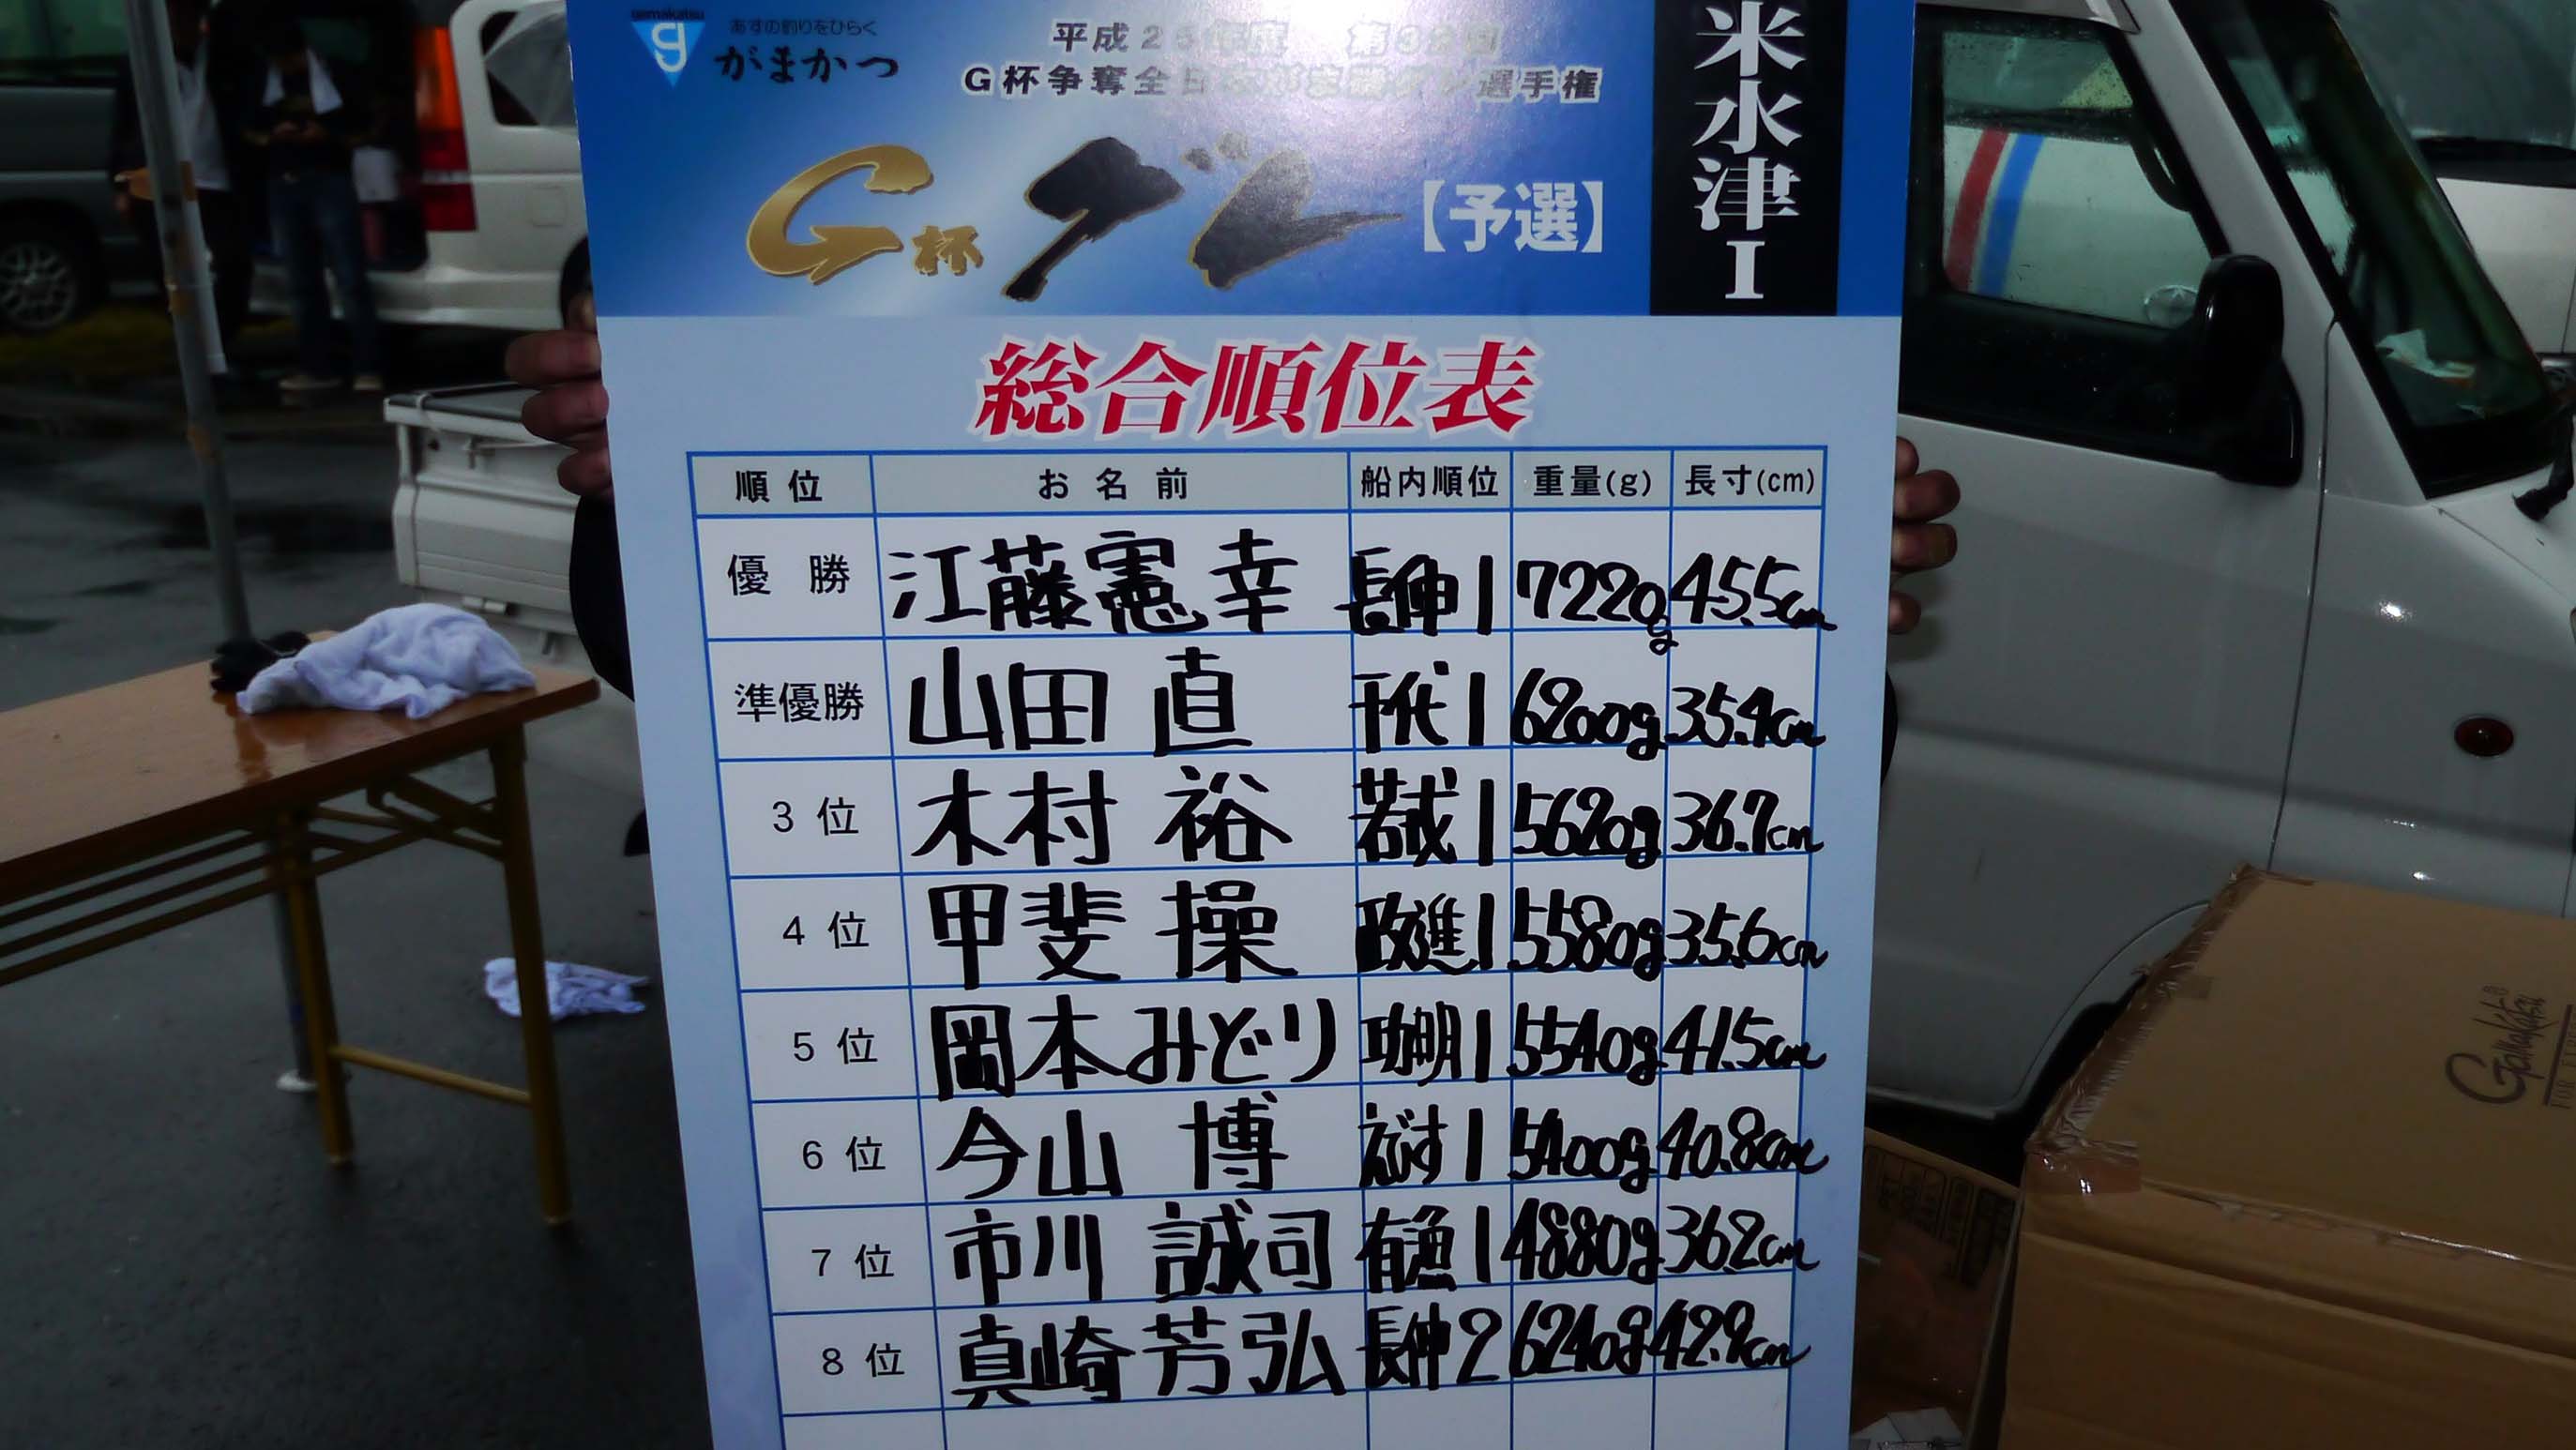 gamakatsu
あすの釣りをひらく
がまかつ
平成25年度 第33回
G杯争奪全日本がま磯グレ選手権
G杯グレ【予選】
米水津I
総合順位表
順位 お名前 船内順位 重量(g) 長寸(cm)
優勝 江藤憲幸 長伸1 7220g 45.5cm
準優勝 山田直 千代1 6200g 35.4cm
3位 木村裕 若戎1 5620g 36.7cm
4位 甲斐操 政進1 5580g 35.6cm
5位 岡本みどり 功明1 5540g 41.5cm
6位 今山博 えびす1 5400g 40.8cm
7位 市川誠司 有漁1 4880g 36.2cm
8位 真崎芳弘 長伸2 6240g 42.9cm
Gamakatsu